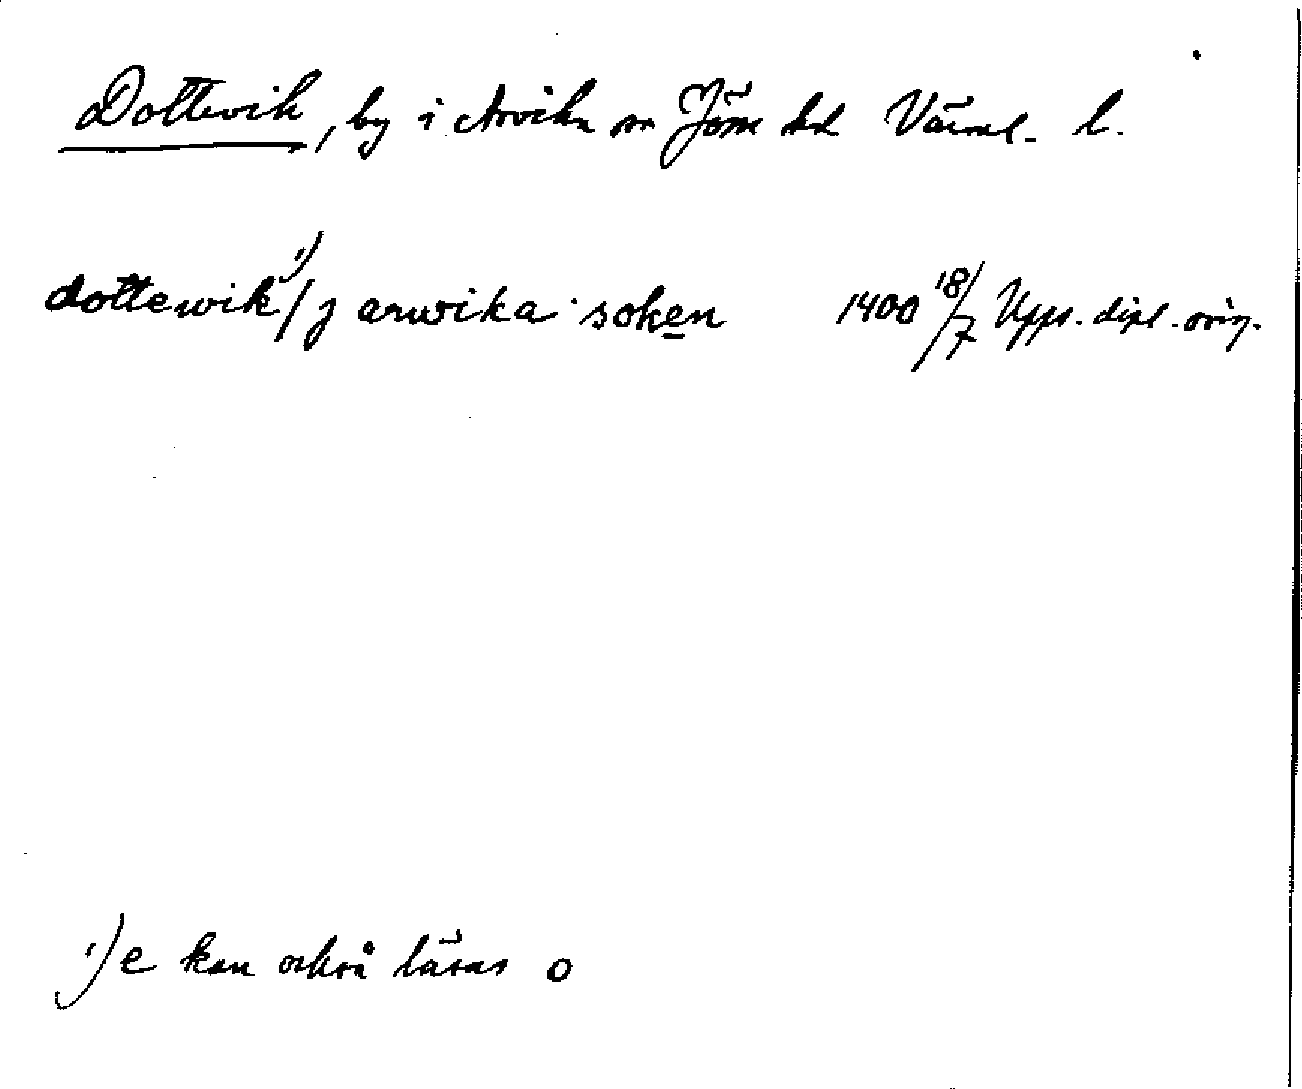 Dottevik, by i Arvika sn Jöss hd Värml. l.
dottewik¹⁾/j arwika soken 1400 18/7 Upps. dipl. orig.
¹⁾ e kan också läsas o